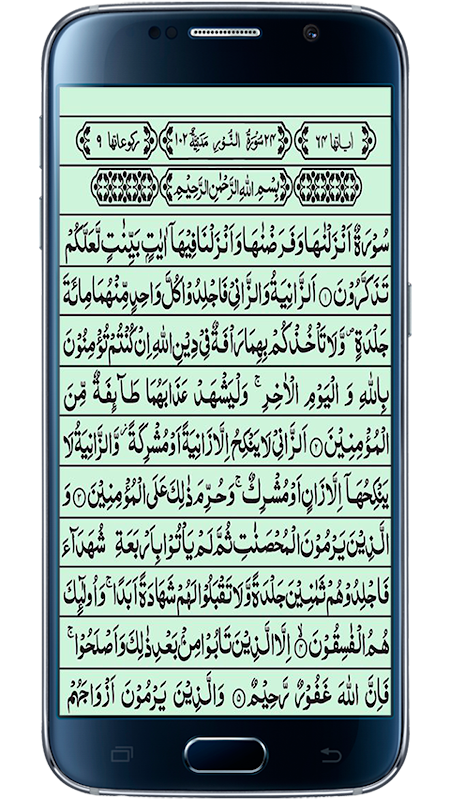 اٰیاتها ٦٤ ٢٤ سُوْرَةُ النُّوْرِ مَدَنِيَّةٌ ١٠٢ رکوعاتها ٩
بِسْمِ اللهِ الرَّحْمٰنِ الرَّحِيْمِ
سُوْرَةٌ اَنْزَلْنٰهَا وَفَرَضْنٰهَا وَاَنْزَلْنَا فِيْهَاۤ اٰيٰتٍۭ بَيِّنٰتٍ لَّعَلَّكُمْ
تَذَكَّرُوْنَ ۝١ اَلزَّانِيَةُ وَالزَّانِيْ فَاجْلِدُوْا كُلَّ وَاحِدٍ مِّنْهُمَا مِائَةَ
جَلْدَةٍ ۪ وَّلَا تَاْخُذْكُمْ بِهِمَا رَاْفَةٌ فِيْ دِيْنِ اللهِ اِنْ كُنْتُمْ تُؤْمِنُوْنَ
بِاللهِ وَ الْيَوْمِ الْاٰخِرِ ۚ وَلْيَشْهَدْ عَذَابَهُمَا طَآئِفَةٌ مِّنَ
الْمُؤْمِنِيْنَ ۝٢ اَلزَّانِيْ لَا يَنْكِحُ اِلَّا زَانِيَةً اَوْ مُشْرِكَةً ؗ وَّالزَّانِيَةُ لَا
يَنْكِحُهَاۤ اِلَّا زَانٍ اَوْ مُشْرِكٌ ۚ وَحُرِّمَ ذٰلِكَ عَلَى الْمُؤْمِنِيْنَ ۝٣ وَ
الَّذِيْنَ يَرْمُوْنَ الْمُحْصَنٰتِ ثُمَّ لَمْ يَاْتُوْا بِاَرْبَعَةِ شُهَدَآءَ
فَاجْلِدُوْهُمْ ثَمٰنِيْنَ جَلْدَةً وَّلَا تَقْبَلُوْا لَهُمْ شَهَادَةً اَبَدًا ۚ وَاُولٰٓئِكَ
هُمُ الْفٰسِقُوْنَ ۝٤ اِلَّا الَّذِيْنَ تَابُوْا مِنْۢ بَعْدِ ذٰلِكَ وَاَصْلَحُوْا ۚ
فَاِنَّ اللهَ غَفُوْرٌ رَّحِيْمٌ ۝٥ وَالَّذِيْنَ يَرْمُوْنَ اَزْوَاجَهُمْ